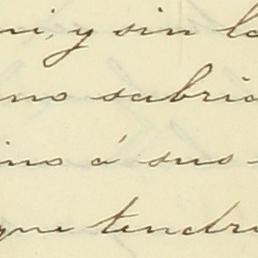 ni, y sin la
no sabria
ino á sus
que tendri